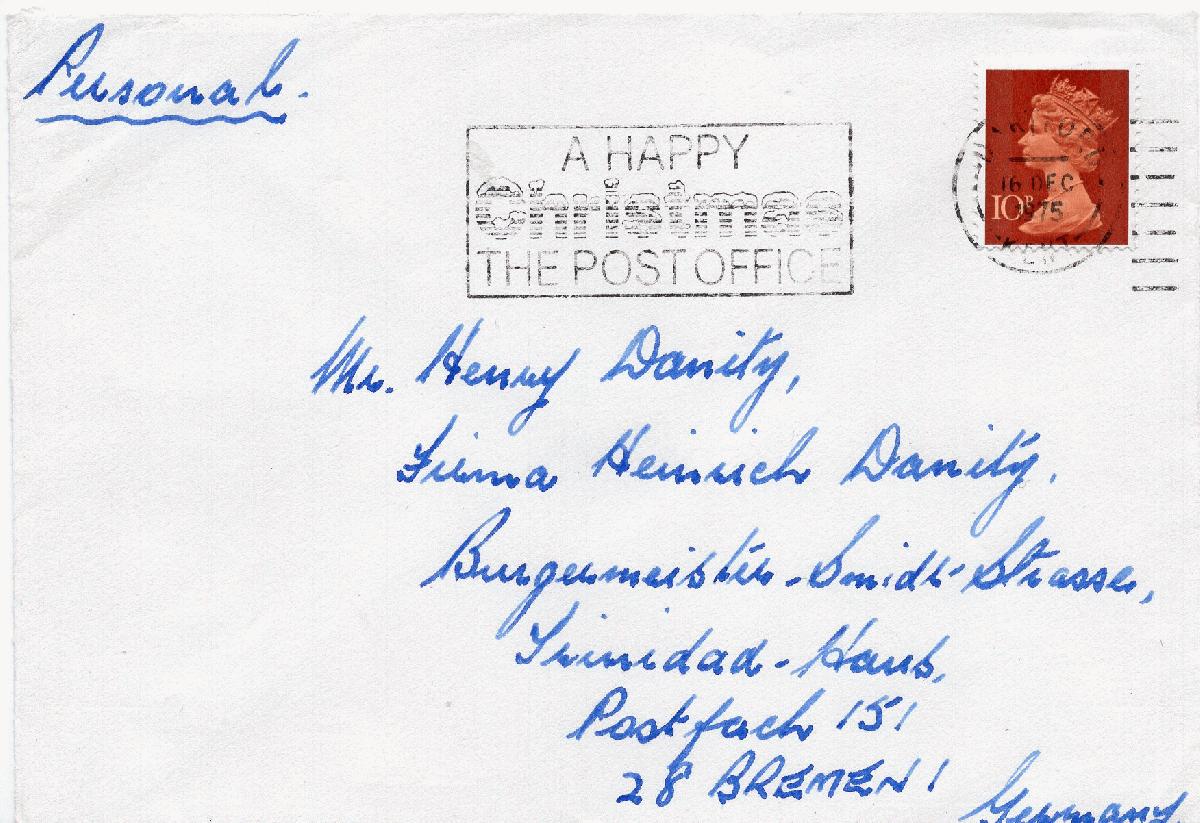 Personal.
A HAPPY
Christmas
THE POST OFFICE
DARTFORD
16 DEC
1975
KENT
10P
Mr. Henry Danity,
Firma Heinrich Danity.
Burgermeister-Smidt-Strasse,
Trinidad-Haus,
Postfach 151
28 BREMEN 1
Germany.